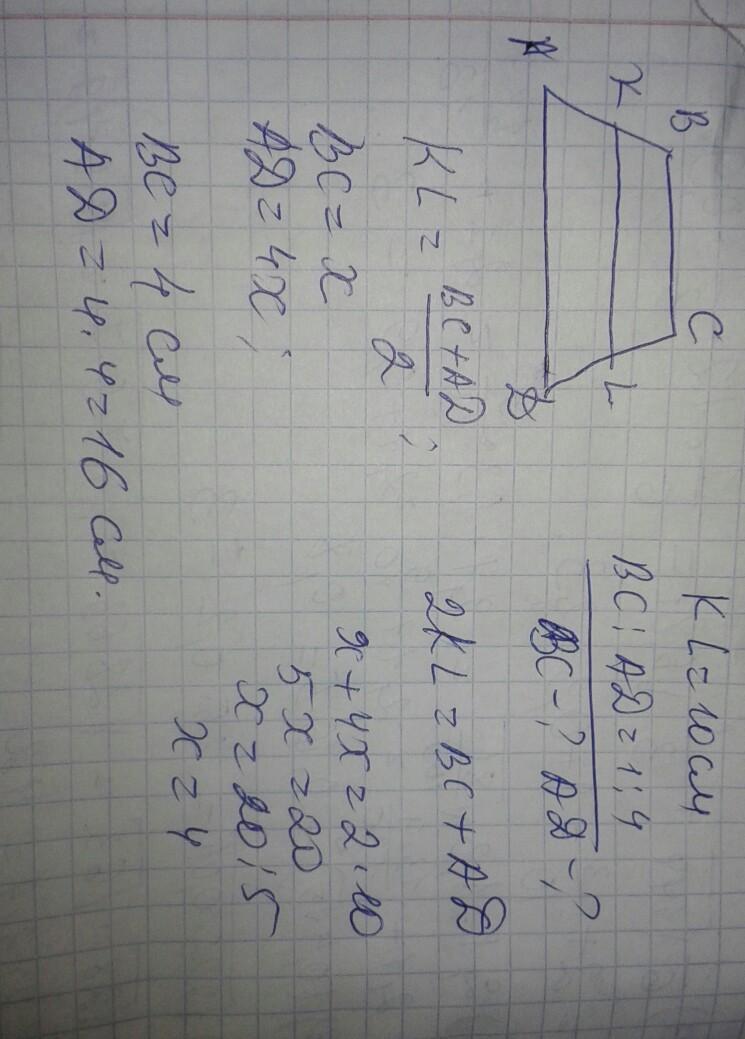 A K B C L D
KL = 10 см
BC : AD = 1 : 4
BC - ? AD - ?
KL = \frac{BC + AD}{2};
2KL = BC + AD
BC = x
AD = 4x;
x + 4x = 2 · 10
5x = 20
x = 20 : 5
x = 4
BC = 4 см
AD = 4 · 4 = 16 см.